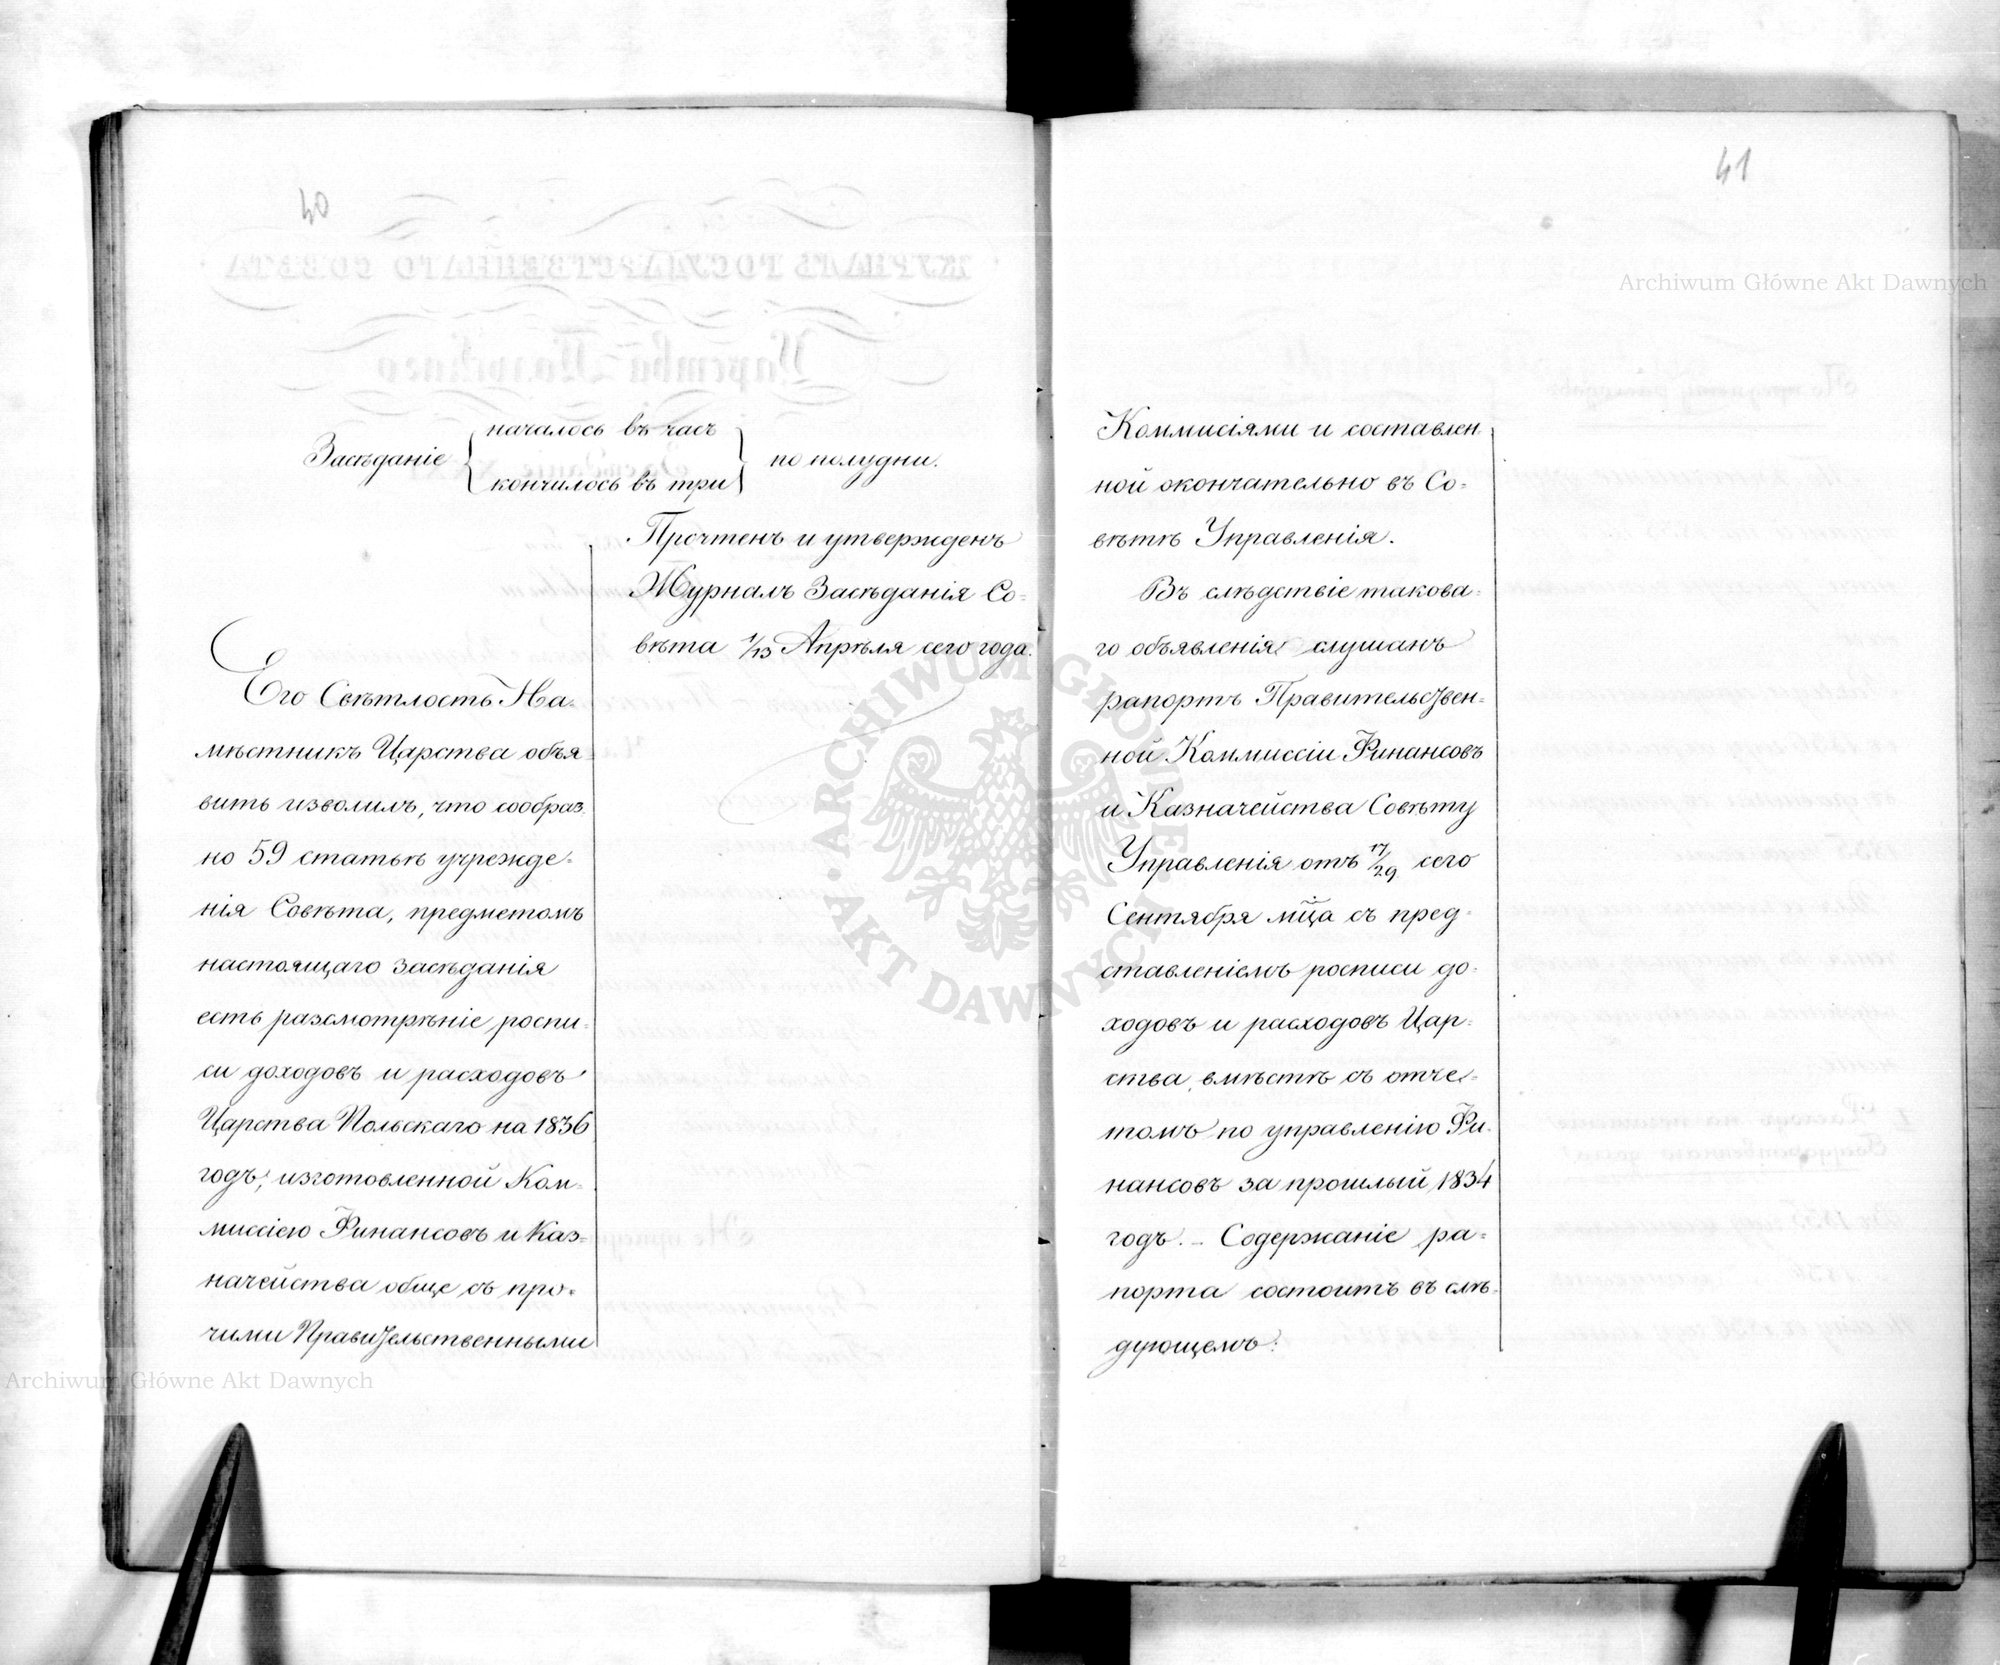 40
началось въ часъ
Засѣданіе
по полудни.
кончилось въ три
Прочтенъ и утвержденъ
Журналъ Засѣданія Со=
вѣта 1/13 Апрѣля сего года.
Его Свѣтлость На=
мѣстникъ Царства объя=
вить изволилъ, что сообраз=
но 59 статьѣ учрежде=
нія Совѣта, предметомъ
настоящаго засѣданія
есть разсмотрѣніе роспи=
си доходовъ и расходовъ
Царства Польскаго на 1836
годъ, изготовленной Ком=
миссіею Финансовъ и Каз=
начейства обще съ про=
чими Правительственными
41
Коммисіями и составлен=
ной окончательно въ Со=
вѣтѣ Управленія.
Въ слѣдствіе такова=
го объявленія слушанъ
рапортъ Правительствен=
ной Коммиссіи Финансовъ
и Казначейства Совѣту
Управленія отъ 17/29 сего
Сентября мц̃а съ пред=
ставленіемъ росписи до=
ходовъ и расходовъ Цар=
ства, вмѣстѣ съ отче=
томъ по управленію Фи=
нансовъ за прошлый 1834
годъ. — Содержаніе ра=
порта состоитъ въ слѣ=
дующемъ:
Archiwum Główne Akt Dawnych
ARCHIWUM GŁÓWNE AKT DAWNYCH
Archiwum Główne Akt Dawnych